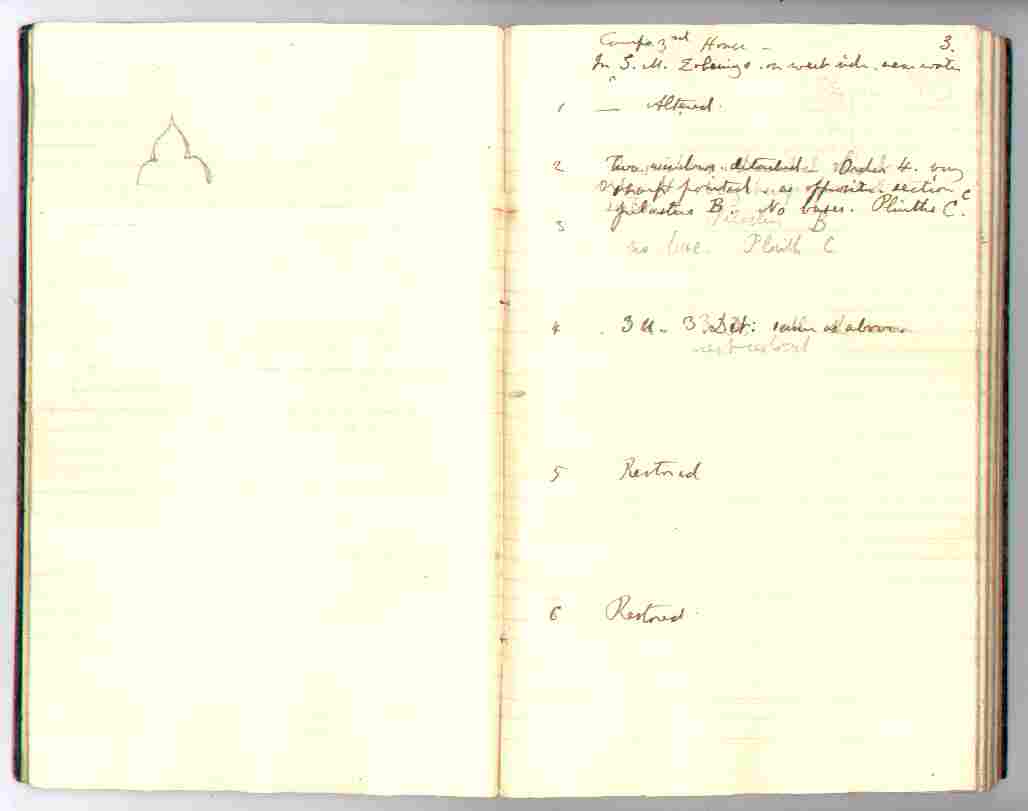 3.
House –
In S. M. on west side. near water
1 — Altered.
2 Two windows detached Order 4. very
sharp pointed as opposite section C
pilasters B. No bases. Plinths C.
3 Pilasters B
no base. Plinth C
4 3 U. 3 Det: as above
rest restored
5 Restored
6 Restored